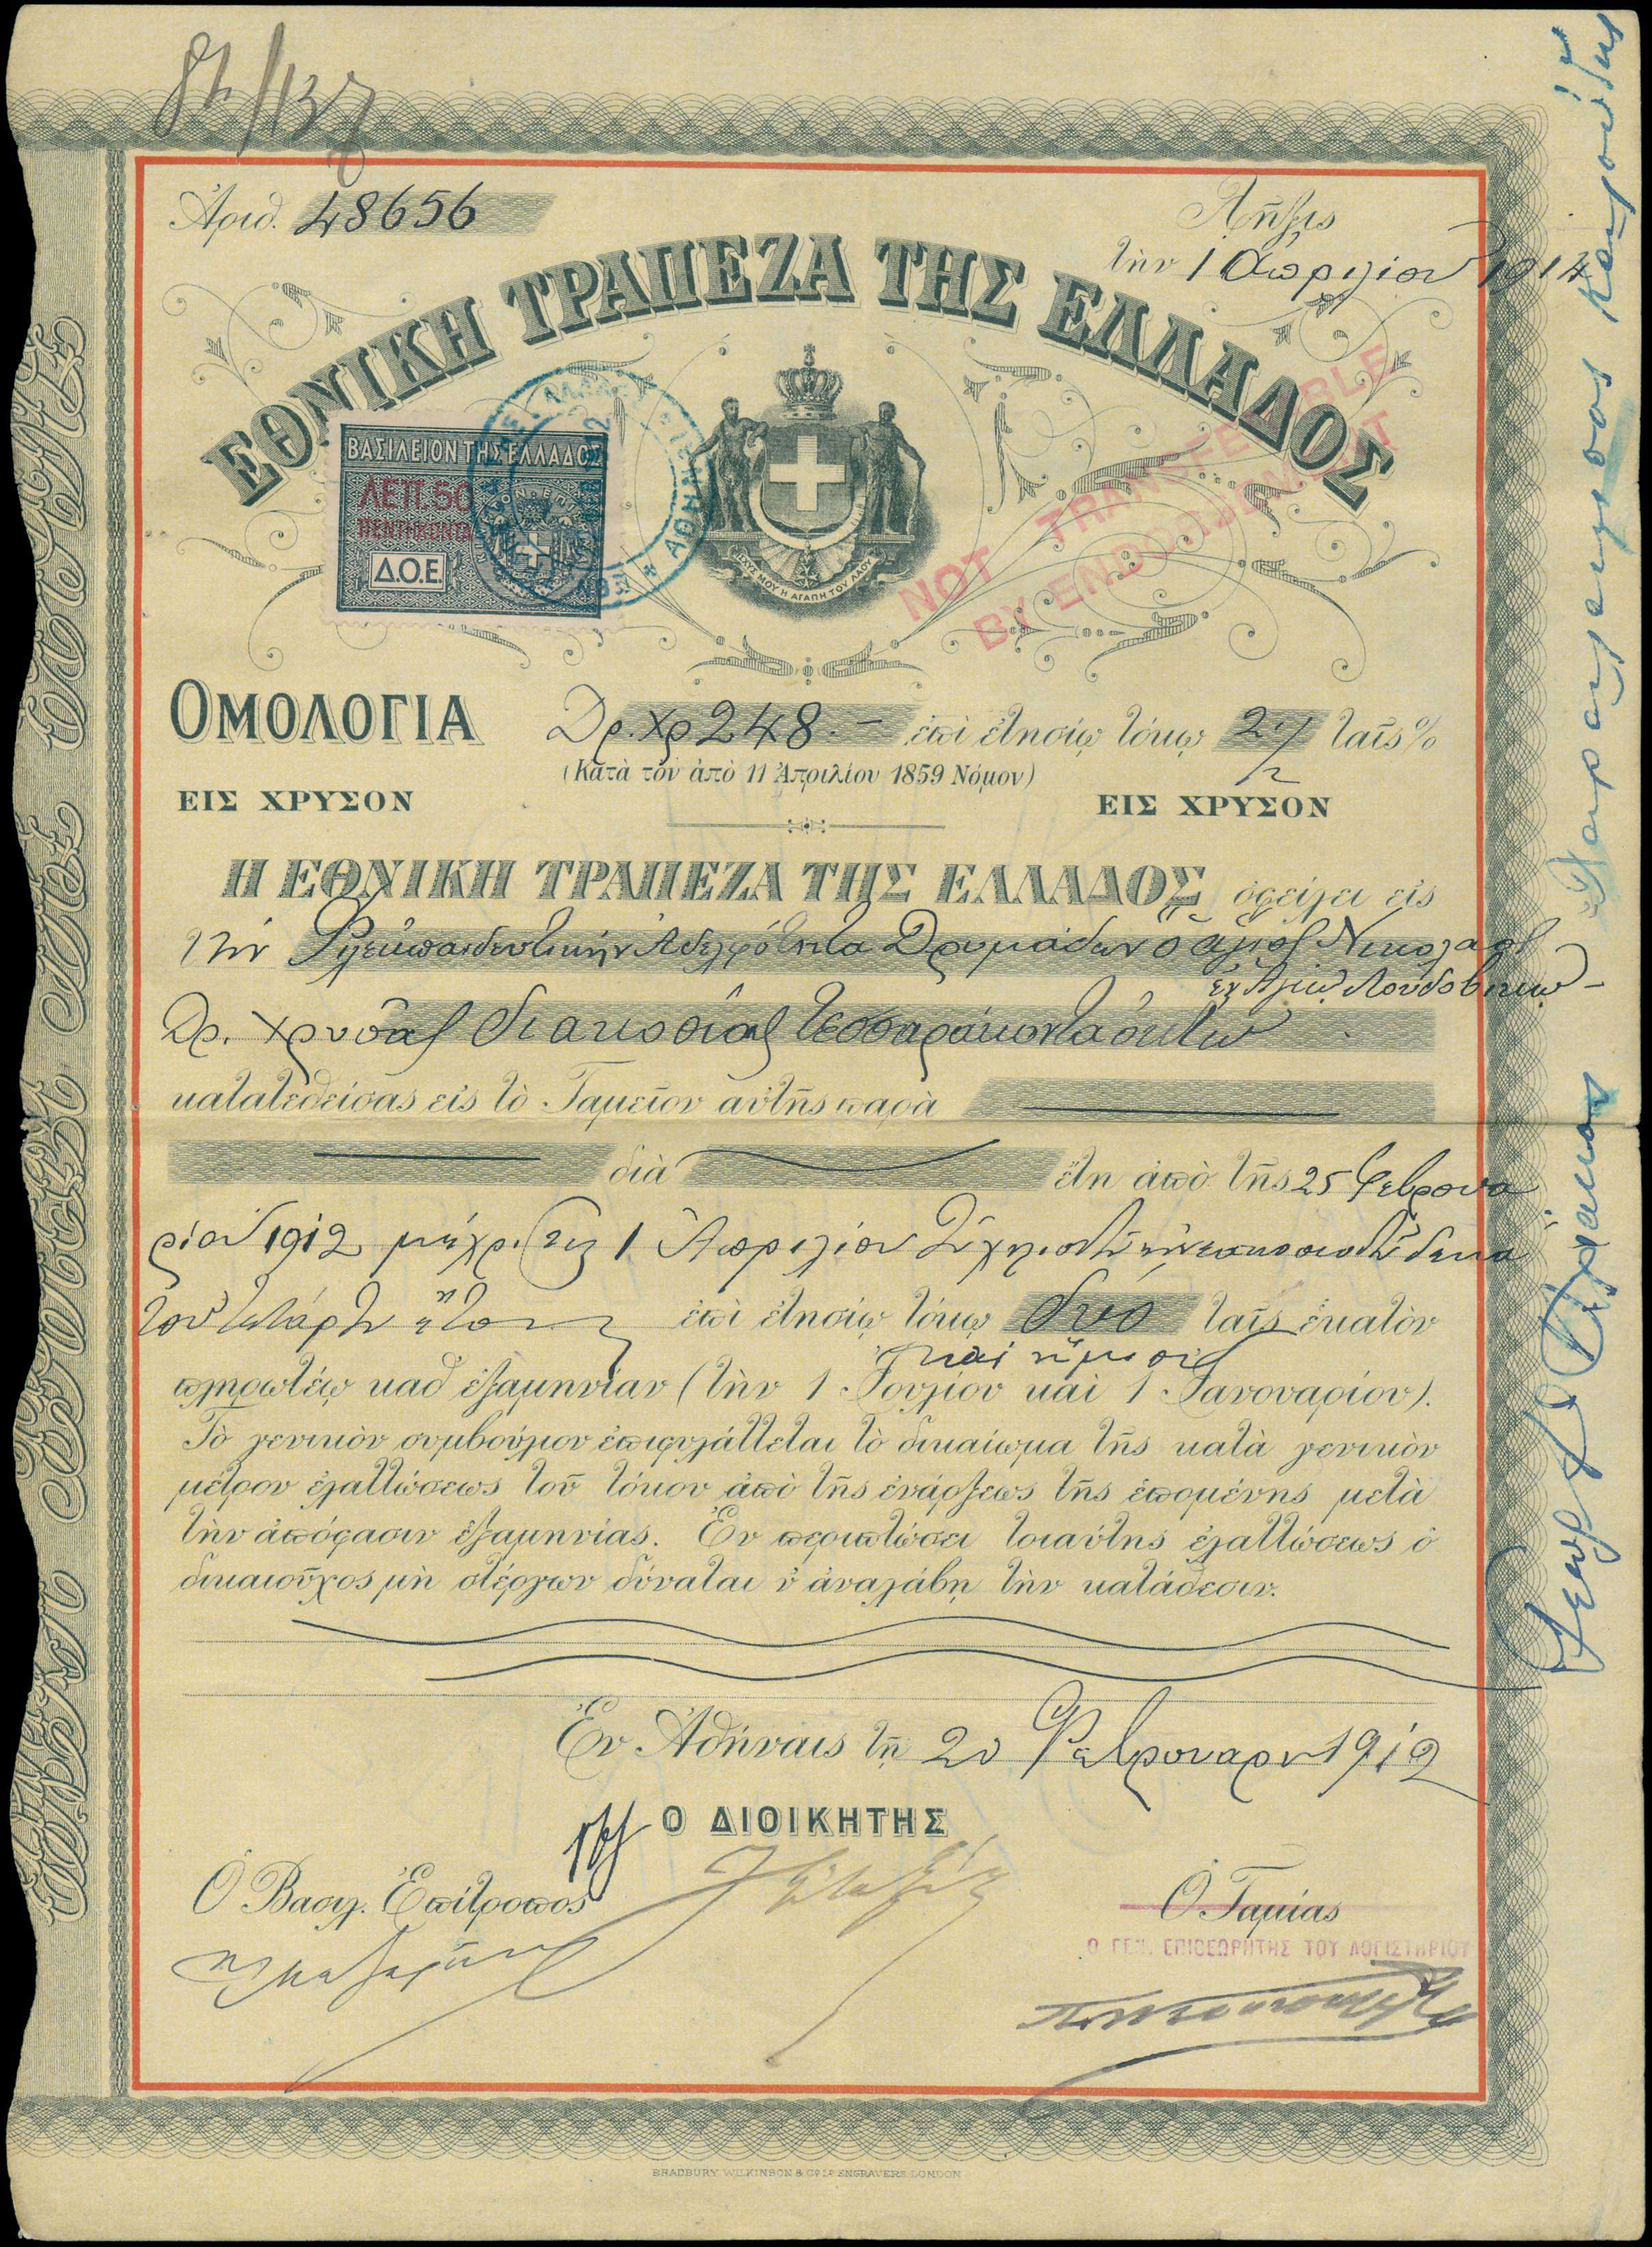 Ἀριθ. 48656
Λῆξις
τὴν 1 Ἀπριλίου 1914
ΕΘΝΙΚΗ ΤΡΑΠΕΖΑ ΤΗΣ ΕΛΛΑΔΟΣ
ΒΑΣΙΛΕΙΟΝ ΤΗΣ ΕΛΛΑΔΟΣ
ΛΕΠ. 50
ΠΕΝΤΗΚΟΝΤΑ
Δ.Ο.Ε.
ΙΣΧΥΣ ΜΟΥ Η ΑΓΑΠΗ ΤΟΥ ΛΑΟΥ
NOT TRANSFERABLE
BY ENDORSEMENT
ΟΜΟΛΟΓΙΑ Δρ. χρ 248.— ἐπὶ ἐτησίῳ τόκῳ 2 1/2 ταῖς %
(Κατὰ τὸν ἀπὸ 11 Ἀπριλίου 1859 Νόμον)
ΕΙΣ ΧΡΥΣΟΝ ΕΙΣ ΧΡΥΣΟΝ
Η ΕΘΝΙΚΗ ΤΡΑΠΕΖΑ ΤΗΣ ΕΛΛΑΔΟΣ ὀφείλει εἰς
τὴν Φιλεκπαιδευτικὴν Ἀδελφότητα Δρυμάδων ὁ ἅγιος Νικόλαος
ἐν Ἁγίῳ Λουδοβίκῳ
Δρ. χρυσᾶς διακοσίας τεσσαράκοντα ὀκτὼ
κατατεθείσας εἰς τὸ Ταμεῖον αὐτῆς παρὰ
διὰ ἔτη ἀπὸ τῆς 25 Φεβρουα
ρίου 1912 μέχρι τῆς 1 Ἀπριλίου χιλιοστοῦ ἐννεακοσιοστοῦ δεκά
του τετάρτου ἔτους ἐπὶ ἐτησίῳ τόκῳ δύο ταῖς ἑκατὸν
καὶ ἥμισυ
πληρωτέῳ καθ' ἑξαμηνίαν (τὴν 1 Ἰουλίου καὶ 1 Ἰανουαρίου).
Τὸ γενικὸν συμβούλιον ἐπιφυλάττεται τὸ δικαίωμα τῆς κατὰ γενικὸν
μέτρον ἐλαττώσεως τοῦ τόκου ἀπὸ τῆς ἐνάρξεως τῆς ἑπομένης μετὰ
τὴν ἀπόφασιν ἑξαμηνίας. Ἐν περιπτώσει τοιαύτης ἐλαττώσεως ὁ
δικαιοῦχος μὴ στέργων δύναται ν' ἀναλάβῃ τὴν κατάθεσιν.
Ἐν Ἀθήναις τῇ 20 Φεβρουαρίου 1912
Ο ΔΙΟΙΚΗΤΗΣ
Ὁ Βασιλ. Ἐπίτροπος
Ὁ Ταμίας
Ο ΓΕΝ. ΕΠΙΘΕΩΡΗΤΗΣ ΤΟΥ ΛΟΓΙΣΤΗΡΙΟΥ
BRADBURY WILKINSON & Co. Ld. ENGRAVERS LONDON